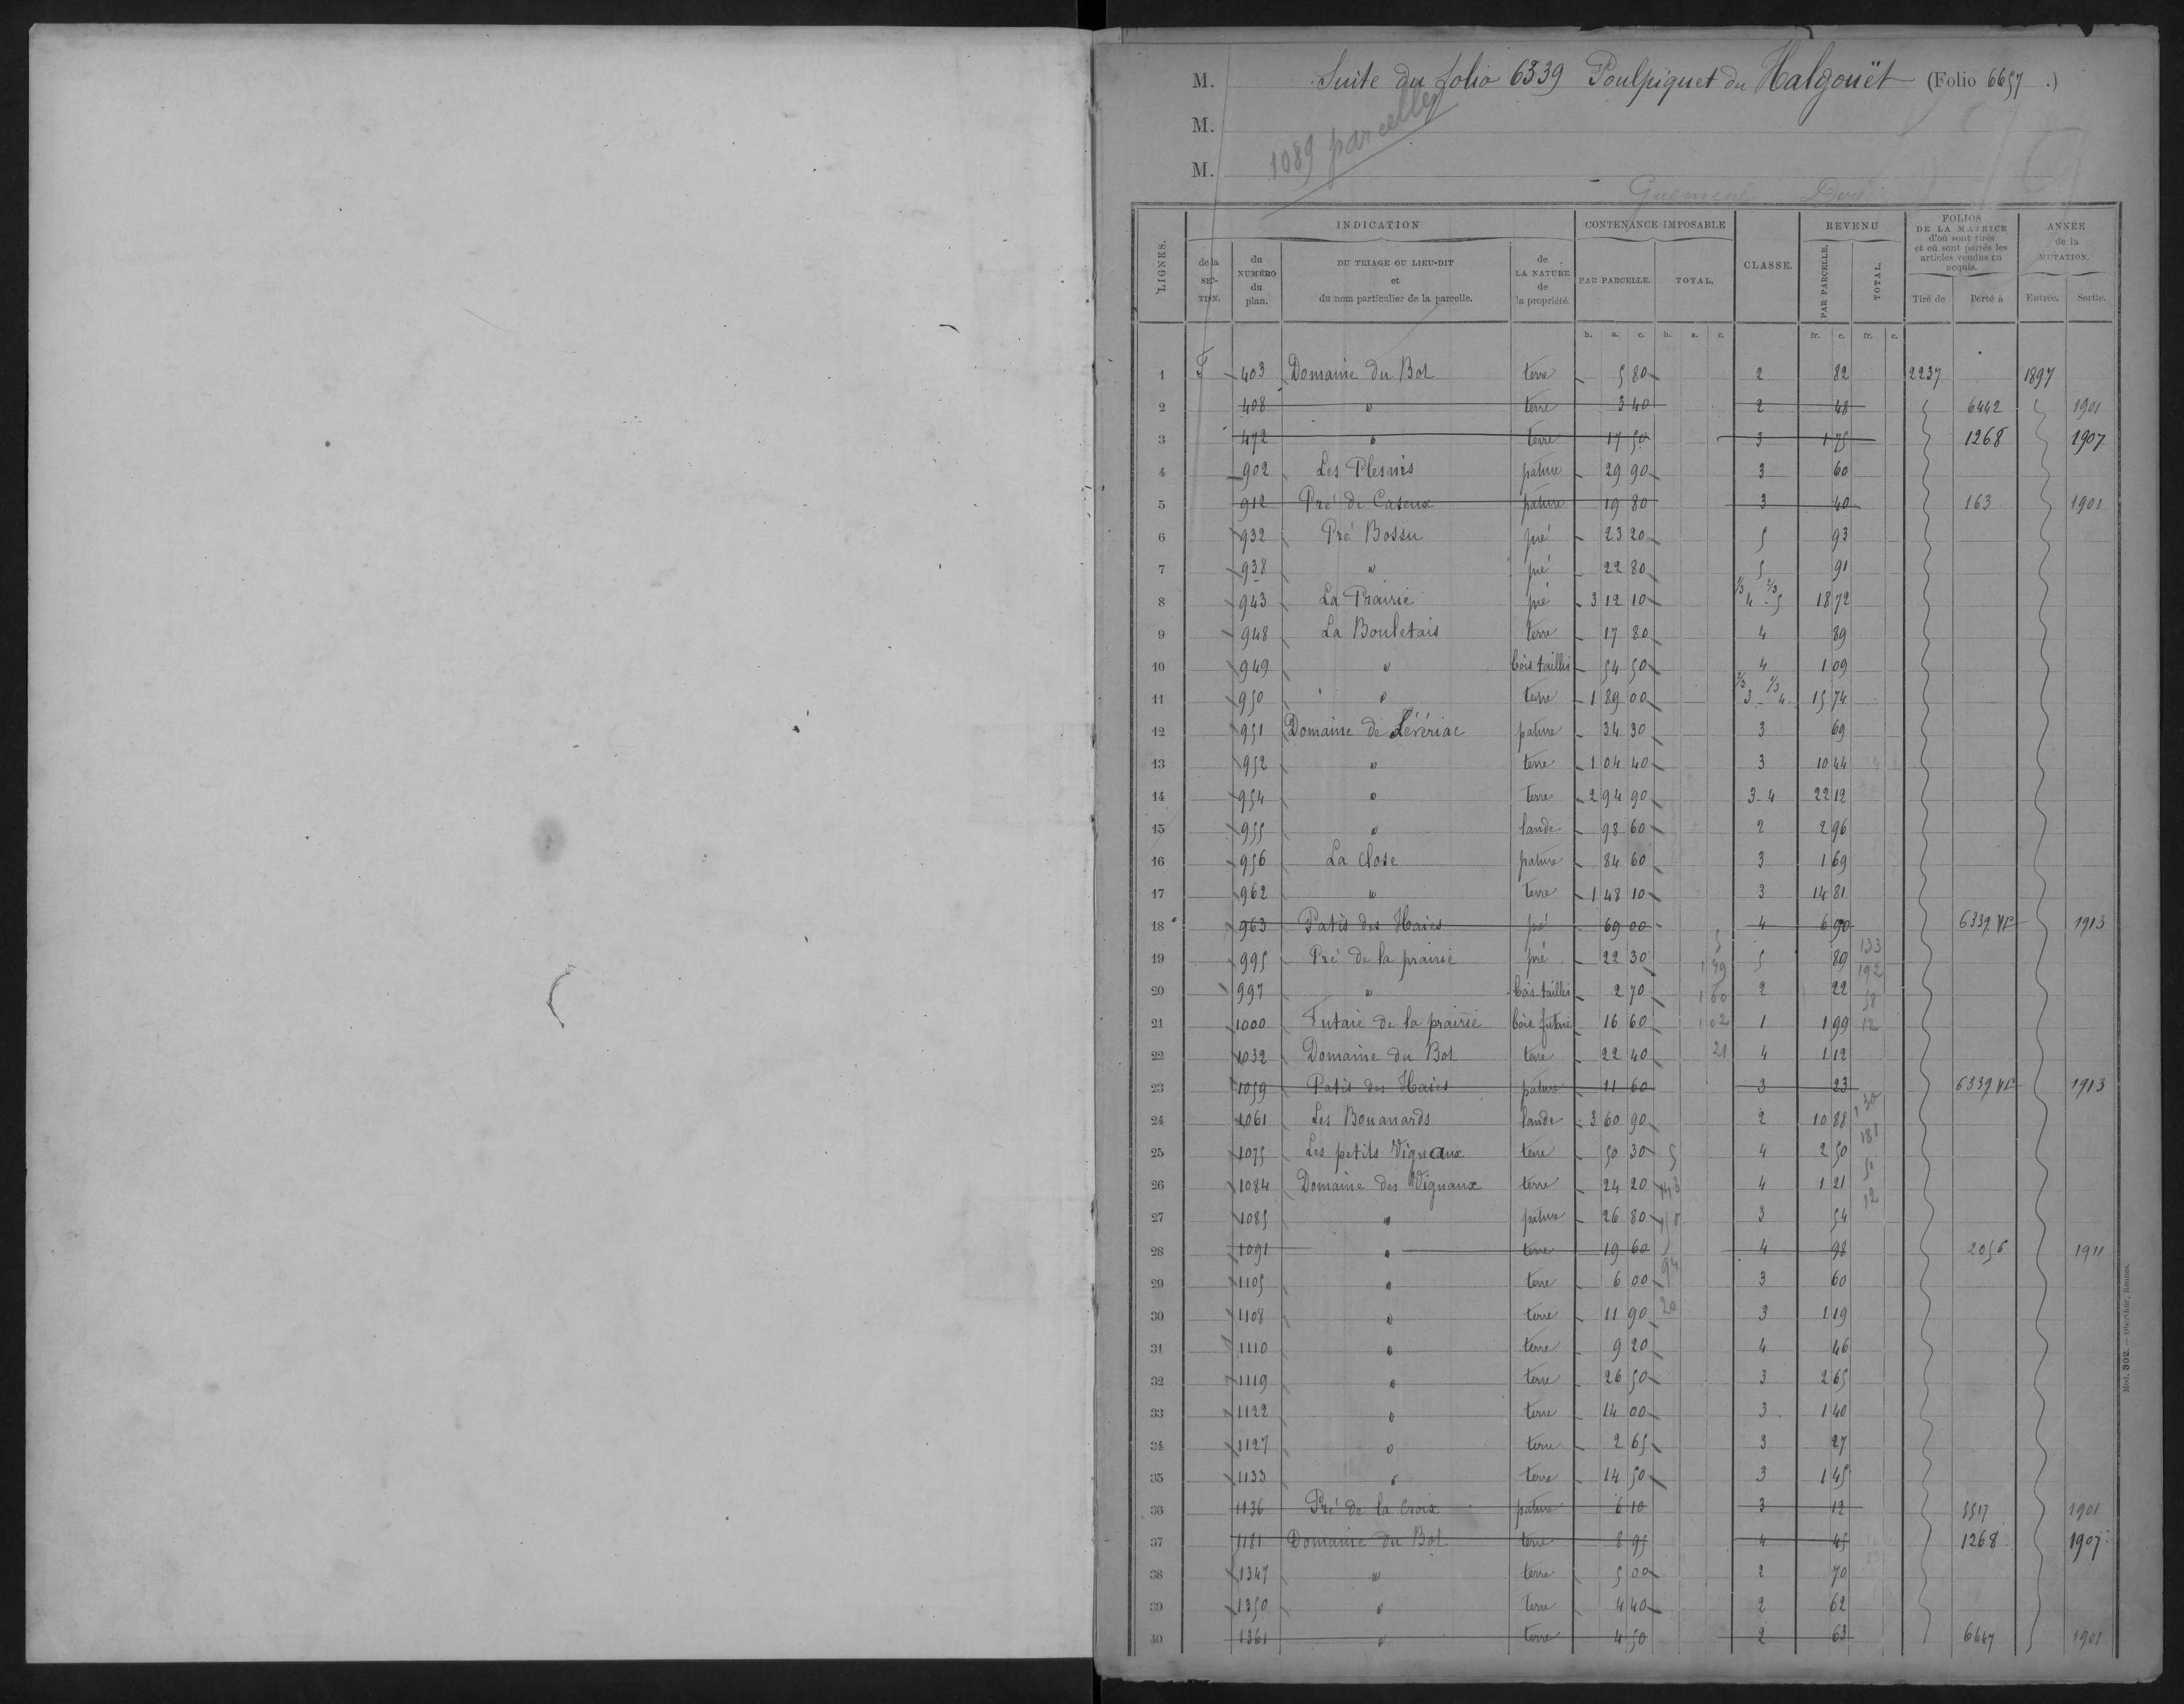 M. Suite du folio 6339 Poulpiquet du Halgouët (Folio 6657.)
M.
1089 parcelles
M.
LIGNES.
INDICATION
CONTENANCE IMPOSABLE
CLASSE.
REVENU
FOLIOS DE LA MATRICE d'où sont tirés et où sont portés les articles vendus ou acquis.
ANNÉE de la MUTATION.
de la SECTION.
du NUMÉRO du plan.
DU TRIAGE OU LIEU-DIT et du nom particulier de la parcelle.
de LA NATURE de la propriété.
PAR PARCELLE. TOTAL.
PAR PARCELLE. TOTAL.
Tiré de Porté à Entrée. Sortie.
h. a. c. h. a. c. fr. c. fr. c.
1 F 403 Domaine du Bot terre 5 80 2 82 2237 1897
2 408 " terre 3 40 2 48 6442 1901
3 472 " terre 17 50 3 1 75 1268 1907
4 902 Les Plesnis pature 29 90 3 60
5 912 Pré de Caseux pature 19 80 3 40 163 1901
6 932 Pré Bossu pré 23 20 5 93
7 938 " pré 22 80 5 91
8 943 La Prairie pré 3 12 10 1/3 4 - 2/3 5 18 72
9 948 La Bouletais terre 17 80 4 89
10 949 " bois taillis 54 50 4 1 09
11 950 " terre 1 89 00 2/3 3 - 1/3 4 15 74
12 951 Domaine de Lévériac pature 34 30 3 69
13 952 " terre 1 04 40 3 10 44
14 954 " terre 2 94 90 3-4 22 12
15 955 " lande 98 60 2 2 96
16 956 La Close pature 84 60 3 1 69
17 962 " terre 1 48 10 3 14 81
18 963 Patis des Haies pré 69 00 4 6 90 6339 VI 1913
19 995 Pré de la prairie pré 22 30 5 89
20 997 " bois taillis 2 70 2 22
21 1000 Futaie de la prairie bois futaie 16 60 1 1 99
22 1032 Domaine du Bot terre 22 40 4 1 12
23 1059 Patis des Haies pature 11 60 3 23 6339 VI 1913
24 1061 Les Bouanards lande 3 60 90 2 10 88
25 1075 Les petits Vignaux terre 50 30 4 2 50
26 1084 Domaine des Vignaux terre 24 20 4 1 21
27 1085 " pature 26 80 3 54
28 1091 " terre 19 60 4 98 2056 1911
29 1105 " terre 6 00 3 60
30 1108 " terre 11 90 3 1 19
31 1110 " terre 9 20 4 46
32 1119 " terre 26 50 3 2 65
33 1122 " terre 14 00 3 1 40
34 1127 " terre 2 65 3 27
35 1133 " terre 14 50 3 1 45
36 1136 Pré de la Croix pature 6 10 3 12 5517 1901
37 1181 Domaine du Bot terre 8 95 4 45 1268 1907
38 1347 " terre 5 00 2 70
39 1350 " terre 4 40 2 62
40 1361 " terre 4 50 2 63 6647 1901
Mod. 302. — Oberthür, Rennes.